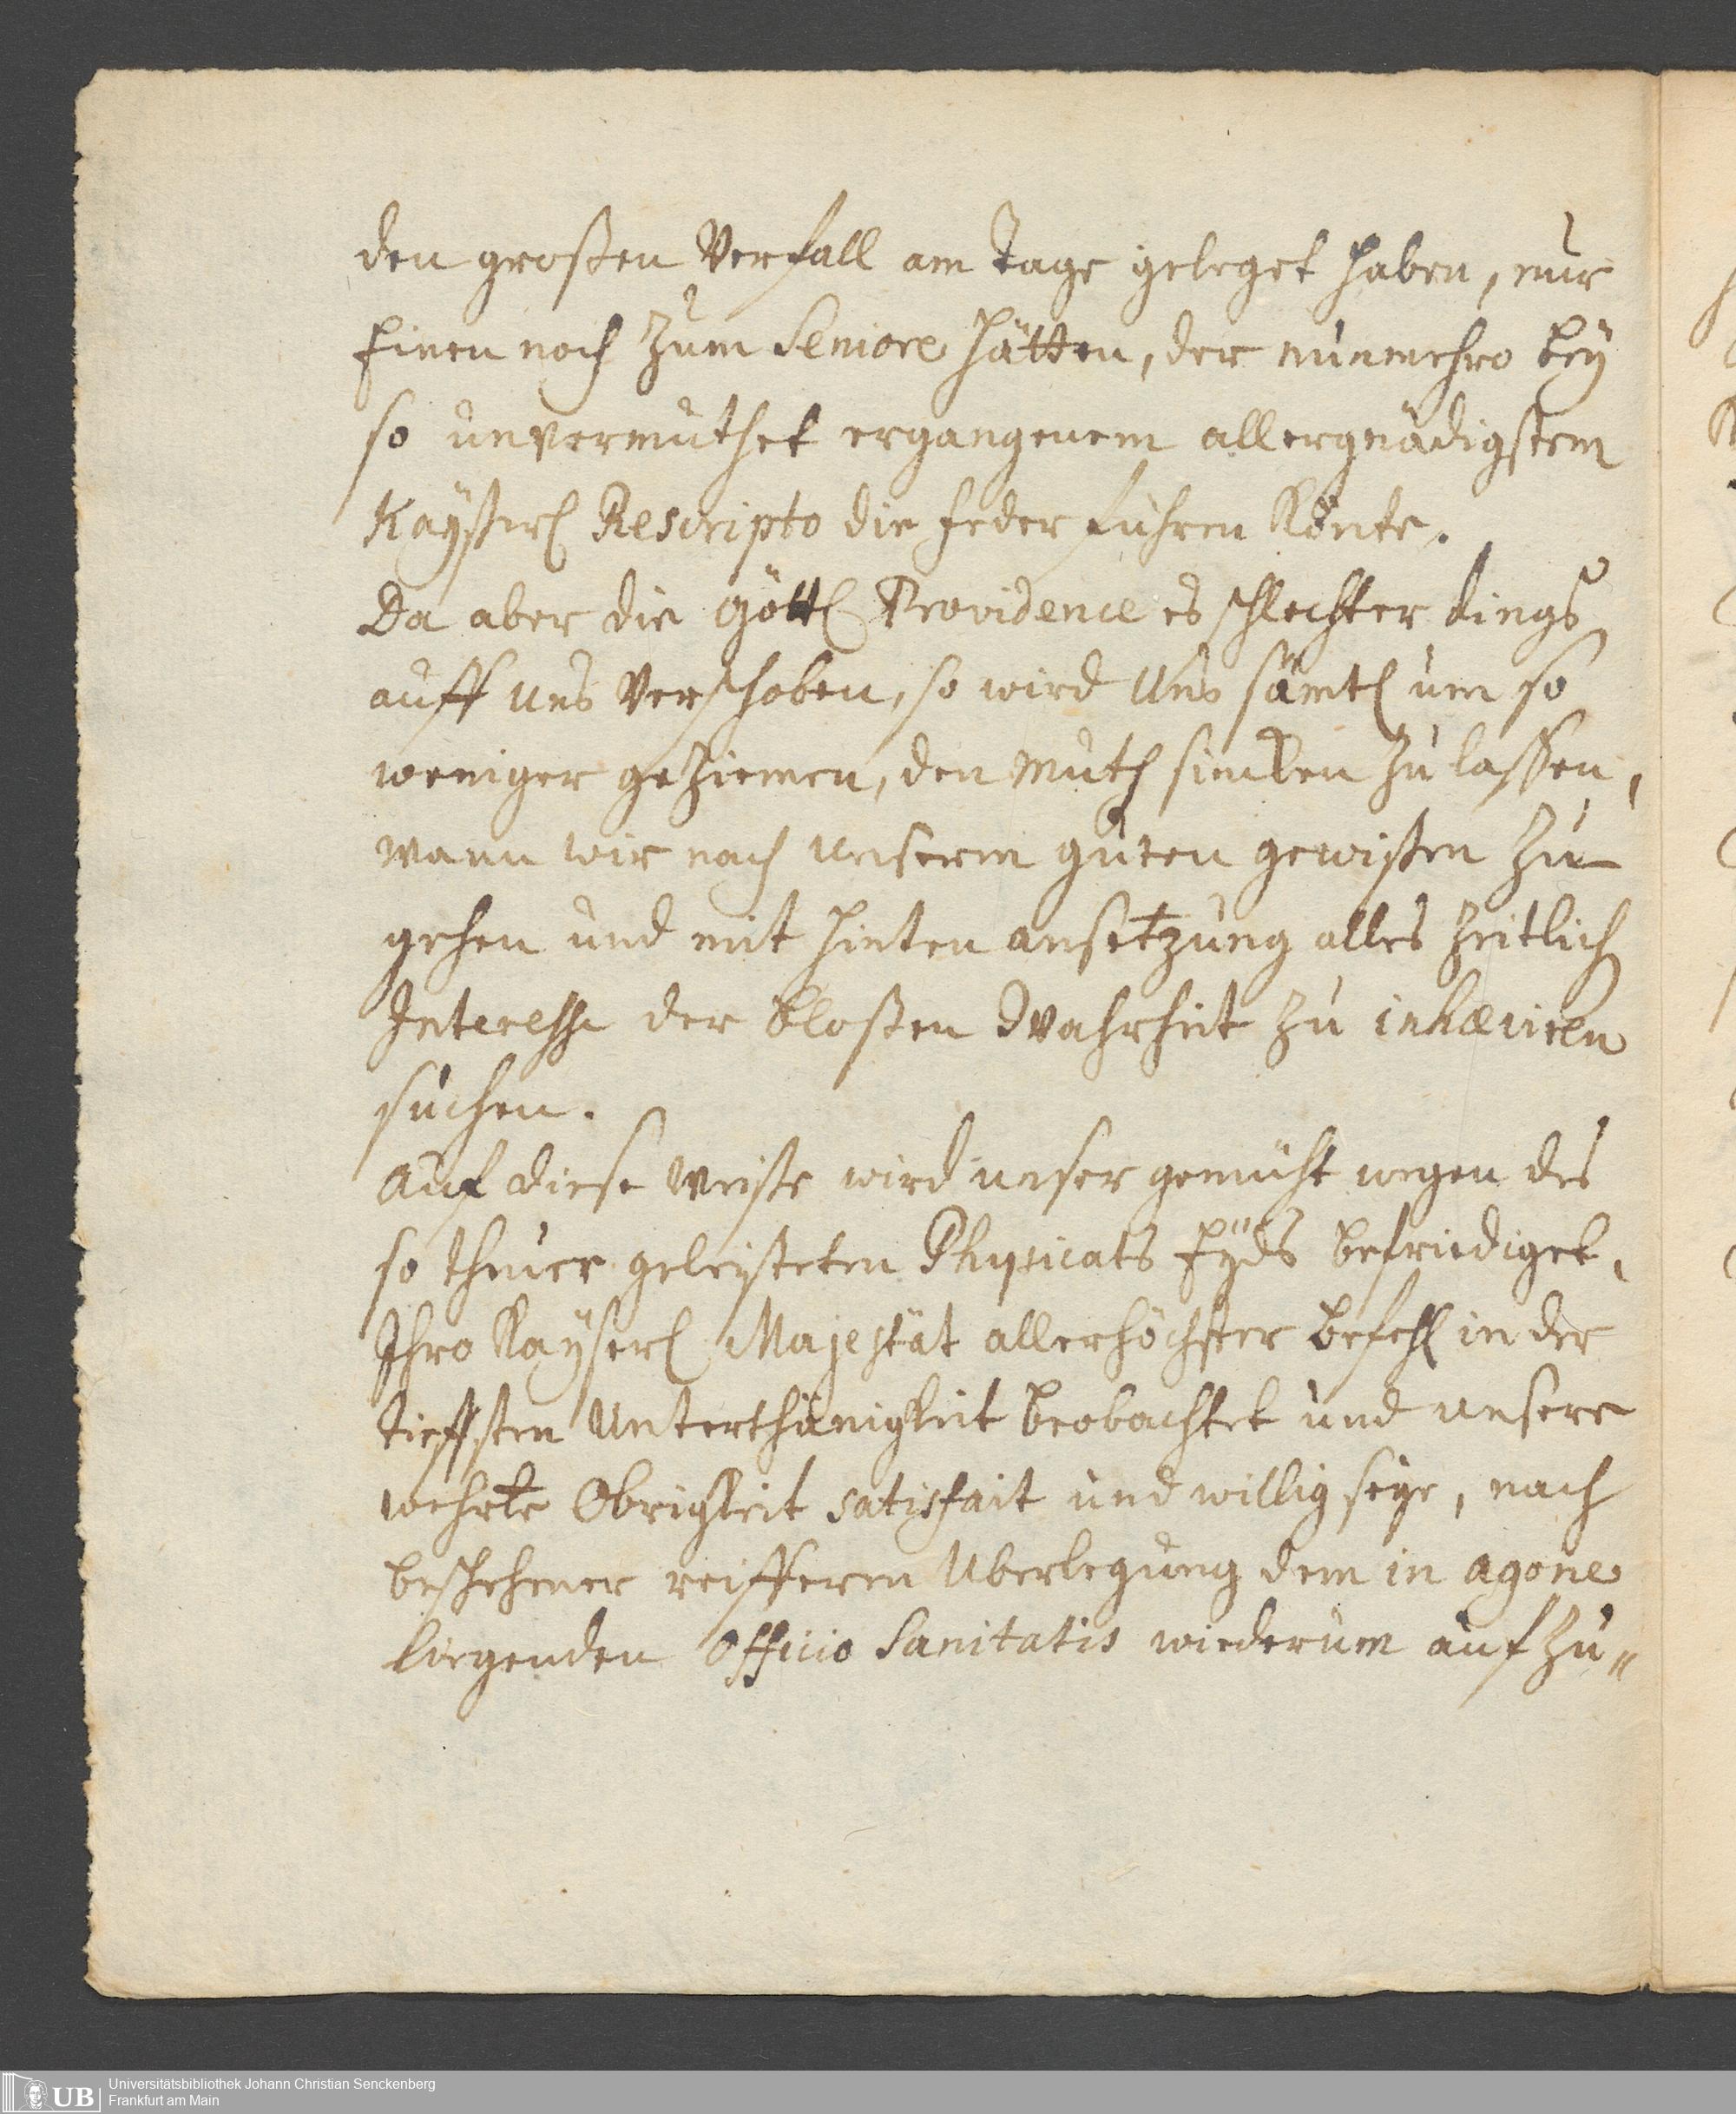 den großen Verfall am Tage geleget haben, nur
Einen noch zum Seniore hätten, der nunmehro bey
so unvermuthet ergangenem allergnädigstem
Kayßerl Rescripto die Feder führen könte.
Da aber die Göttl Providence es schlechter dings
auff uns Verschoben, so wird Uns sämtl um so
weniger geziemen, den Muth sincken zu lassen,
wann wir nach unserm guten gewißen zu
gehen und mit hinten ansetzung alles zeitlich
Interesse der bloßen Wahrheit zu inhæriren
suchen.
Auf diese Weiße wird unser gemüht wegen des
so theuer geleisteten Physicats Eÿds befriediget,
Ihro Kayserl Majestät allerhöchster Befehl in der
tieffsten Unterthänigkeit beobachtet und unsere
wehrte Obrigkeit satisfait und willig seye, nach
beschehener reifferen Uberlegung dem in agone
liegenden Officio Sanitatis wiederum auf zu„
UB
Universitätsbibliothek Johann Christian Senckenberg
Frankfurt am Main